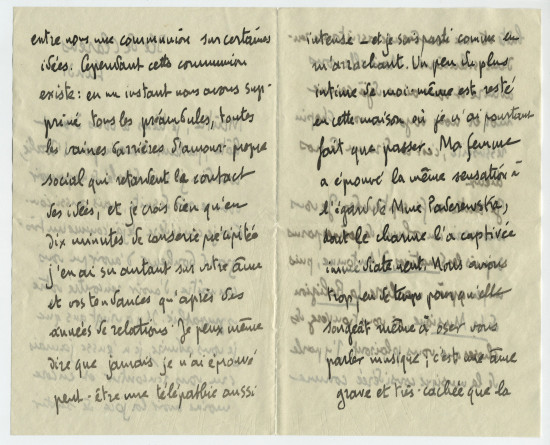 entre nous une communion sur certaines
idées. Cependant cette communion
existe : en un instant nous avons sup-
primé tous les préambules, toutes
les vaines barrières d'amour-propre
social qui retardent le contact
des idées, et je crois bien qu'en
dix minutes de causerie précipitée
j'en ai su autant sur votre âme
et vos tendances qu'après des
années de relations. Je peux même
dire que jamais je n'ai éprouvé
peut-être une télépathie aussi
intense – et je suis parti comme en
m'arrachant. Un peu du plus
intime de moi-même est resté
en cette maison où je n'ai pourtant
fait que passer. Ma femme
a éprouvé la même sensation à
l'égard de Mme Paderewska,
dont le charme l'a captivée
immédiatement. Nous avons
trop peu de temps pour qu'elle
songeât même à oser vous
parler musique ; c'est une âme
grave et très cachée que la